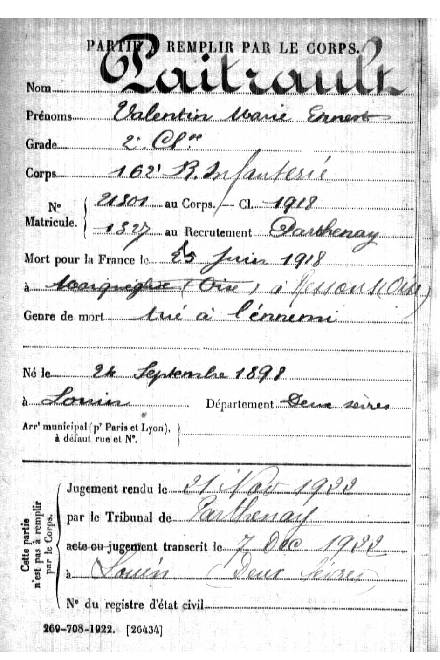 PARTIE À REMPLIR PAR LE CORPS.
Nom Paitrault
Prénoms Valentin Marie Ernest
Grade 2e Clse
Corps 162e R. Infanterie
N° Matricule. { 21801 au Corps. — Cl. 1918
1327 au Recrutement Parthenay
Mort pour la France le Juin 1918
à Marquéglise (Oise) à Ressons s/ (Oise)
Genre de mort tué à l'énnemi
Né le 24 Septembre 1898
à Louin Département Deux sèvres
Arrt municipal (pr Paris et Lyon), à défaut rue et N°.
Cette partie n'est pas à remplir par le Corps.
Jugement rendu le 21 Nov 1922
par le Tribunal de Parthenay
acte ou jugement transcrit le 7 Dec 1922
à Louin (Deux Sèvres)
N° du registre d'état civil
269-708-1922. [26434]